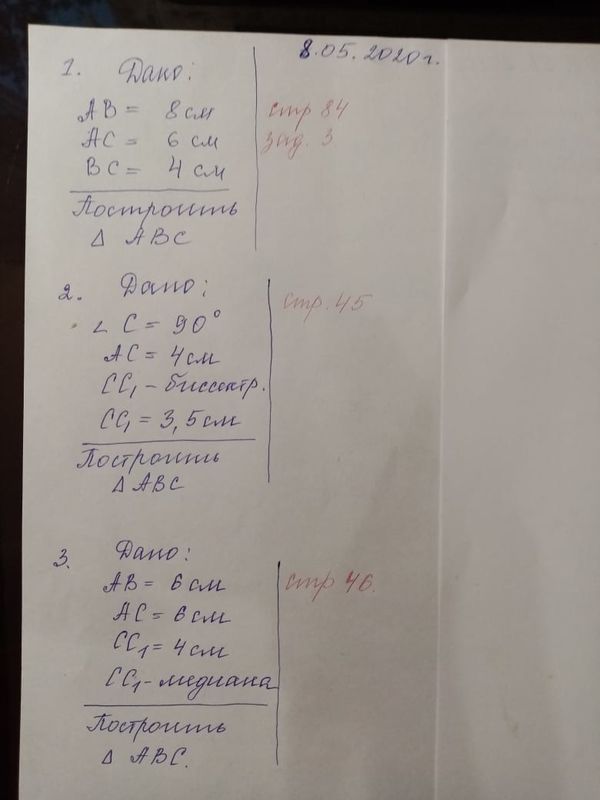 8.05.2020г.
1. Дано:
AB = 8 см
AC = 6 см
BC = 4 см
Построить
Δ ABC
стр 84
зад. 3
2. Дано:
∠ C = 90°
AC = 4 см
CC₁ - биссектр.
CC₁ = 3,5 см
Построить
Δ ABC
стр. 45
3. Дано:
AB = 6 см
AC = 6 см
CC₁ = 4 см
CC₁ - медиана
Построить
Δ ABC.
стр 46.